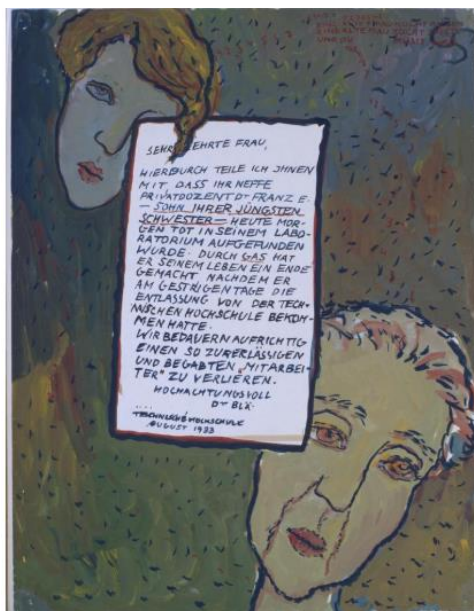 SEHR GEEHRTE FRAU,
HIERDURCH TEILE ICH IHNEN
MIT, DASS IHR NEFFE
PRIVATDOZENT Dr FRANZ E.
— SOHN IHRER JÜNGSTEN
SCHWESTER — HEUTE MOR-
GEN TOT IN SEINEM LABO-
RATORIUM AUFGEFUNDEN
WURDE. DURCH GAS HAT
ER SEINEM LEBEN EIN ENDE
GEMACHT NACHDEM ER
AM GESTRIGEN TAGE DIE
ENTLASSUNG VON DER TECH-
NISCHEN HOCHSCHULE BEKOM-
MEN HATTE.
WIR BEDAUERN AUFRICHTIG
EINEN SO ZUVERLÄSSIGEN
UND BEGABTEN „MITARBEI-
TER" ZU VERLIEREN.
HOCHACHTUNGSVOLL
Dr BLX.
TECHNISCHE HOCHSCHULE
AUGUST 1933